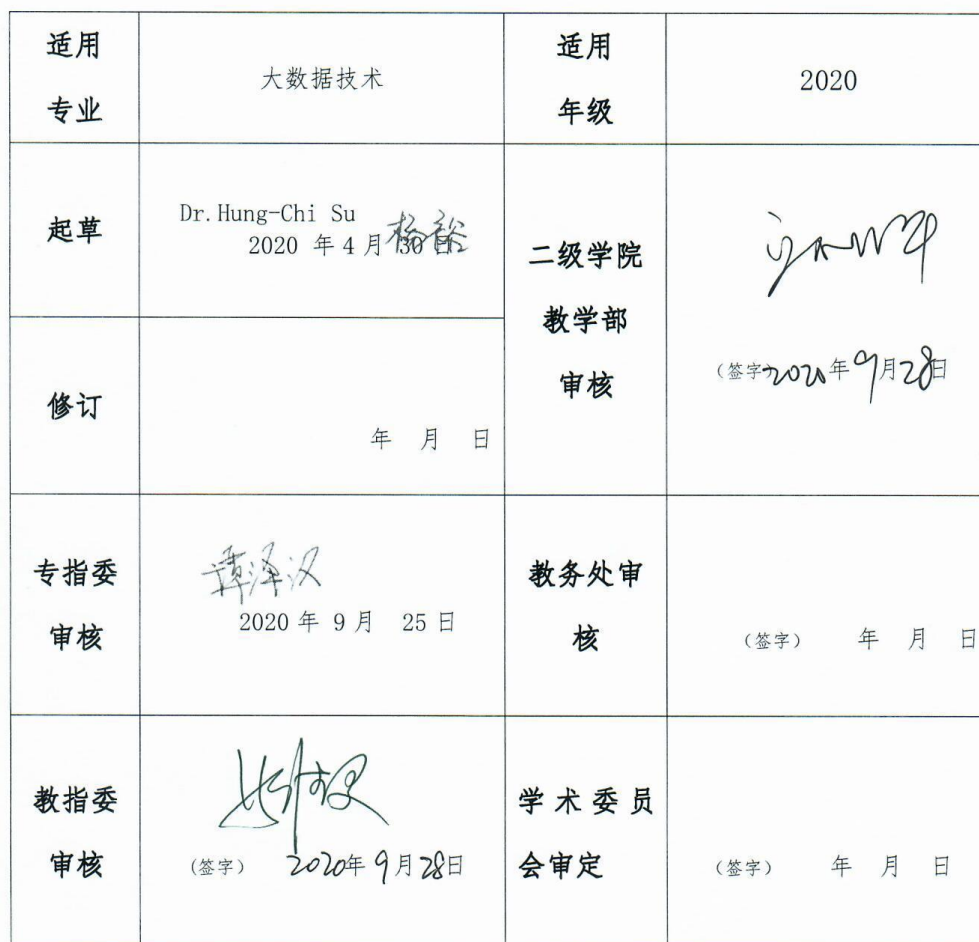 适用
专业
大数据技术
适用
年级
2020
起草
Dr.Hung-Chi Su
2020 年 4 月 30 日
杨裕
二级学院
教学部
审核
(签字) 2020年9月28日
修订
年 月 日
专指委
审核
谭泽汉
2020 年 9 月 25 日
教务处审
核
(签字) 年 月 日
教指委
审核
(签字) 2020年9月28日
学术委员
会审定
(签字) 年 月 日